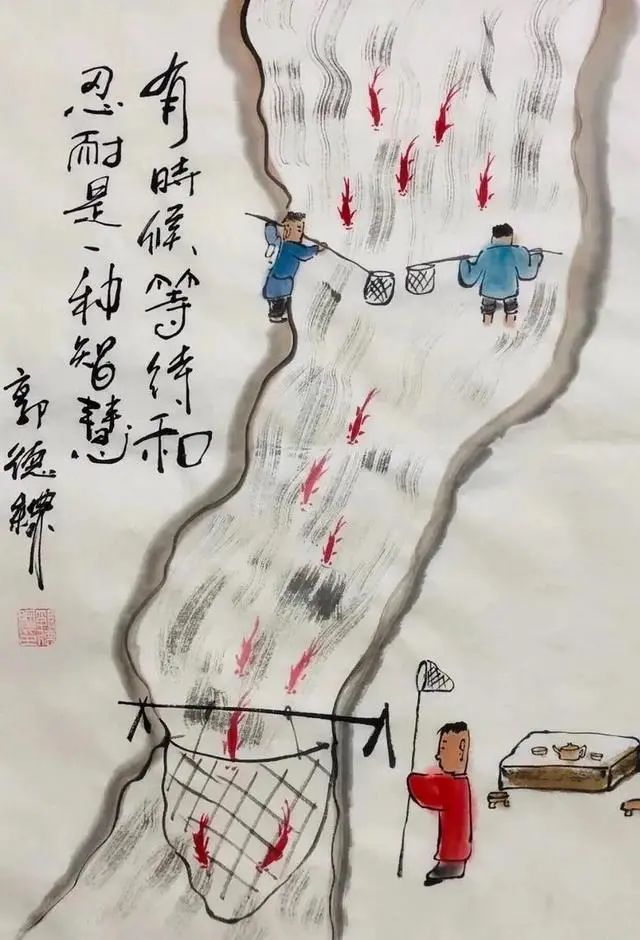 有時候、等待和
忍耐是一种智慧
郭德